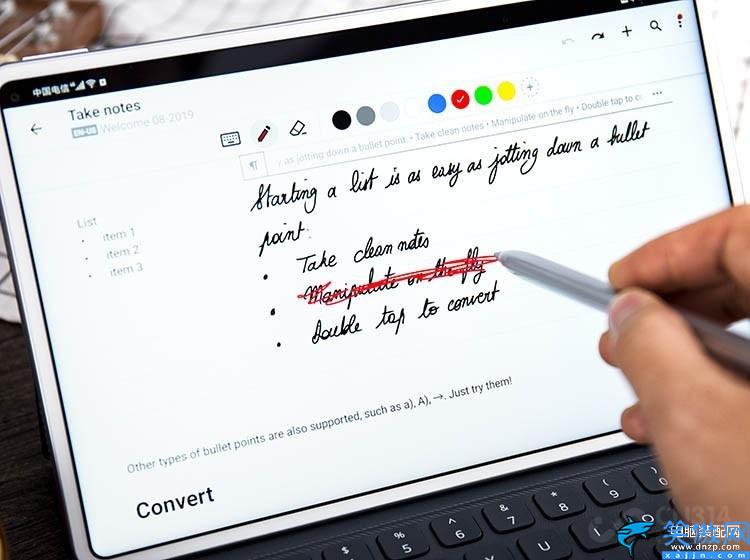 中国电信
Take notes
EN-US Welcome 08-2019
as jotting down a bullet point: • Take clean notes • Manipulate on the fly • Double tap to c
Starting a list is as easy as jotting down a bullet
point:
• Take clean notes
• Manipulate on the fly
• Double tap to convert
List
• item 1
• item 2
• item 3
Other types of bullet points are also supported, such as a), A), →. Just try them!
Convert
$
%
5
^
6
&
7
*
8
(
9
)
T
Y
U
电脑装配网
www.dnzp.com
www.xajjn.com